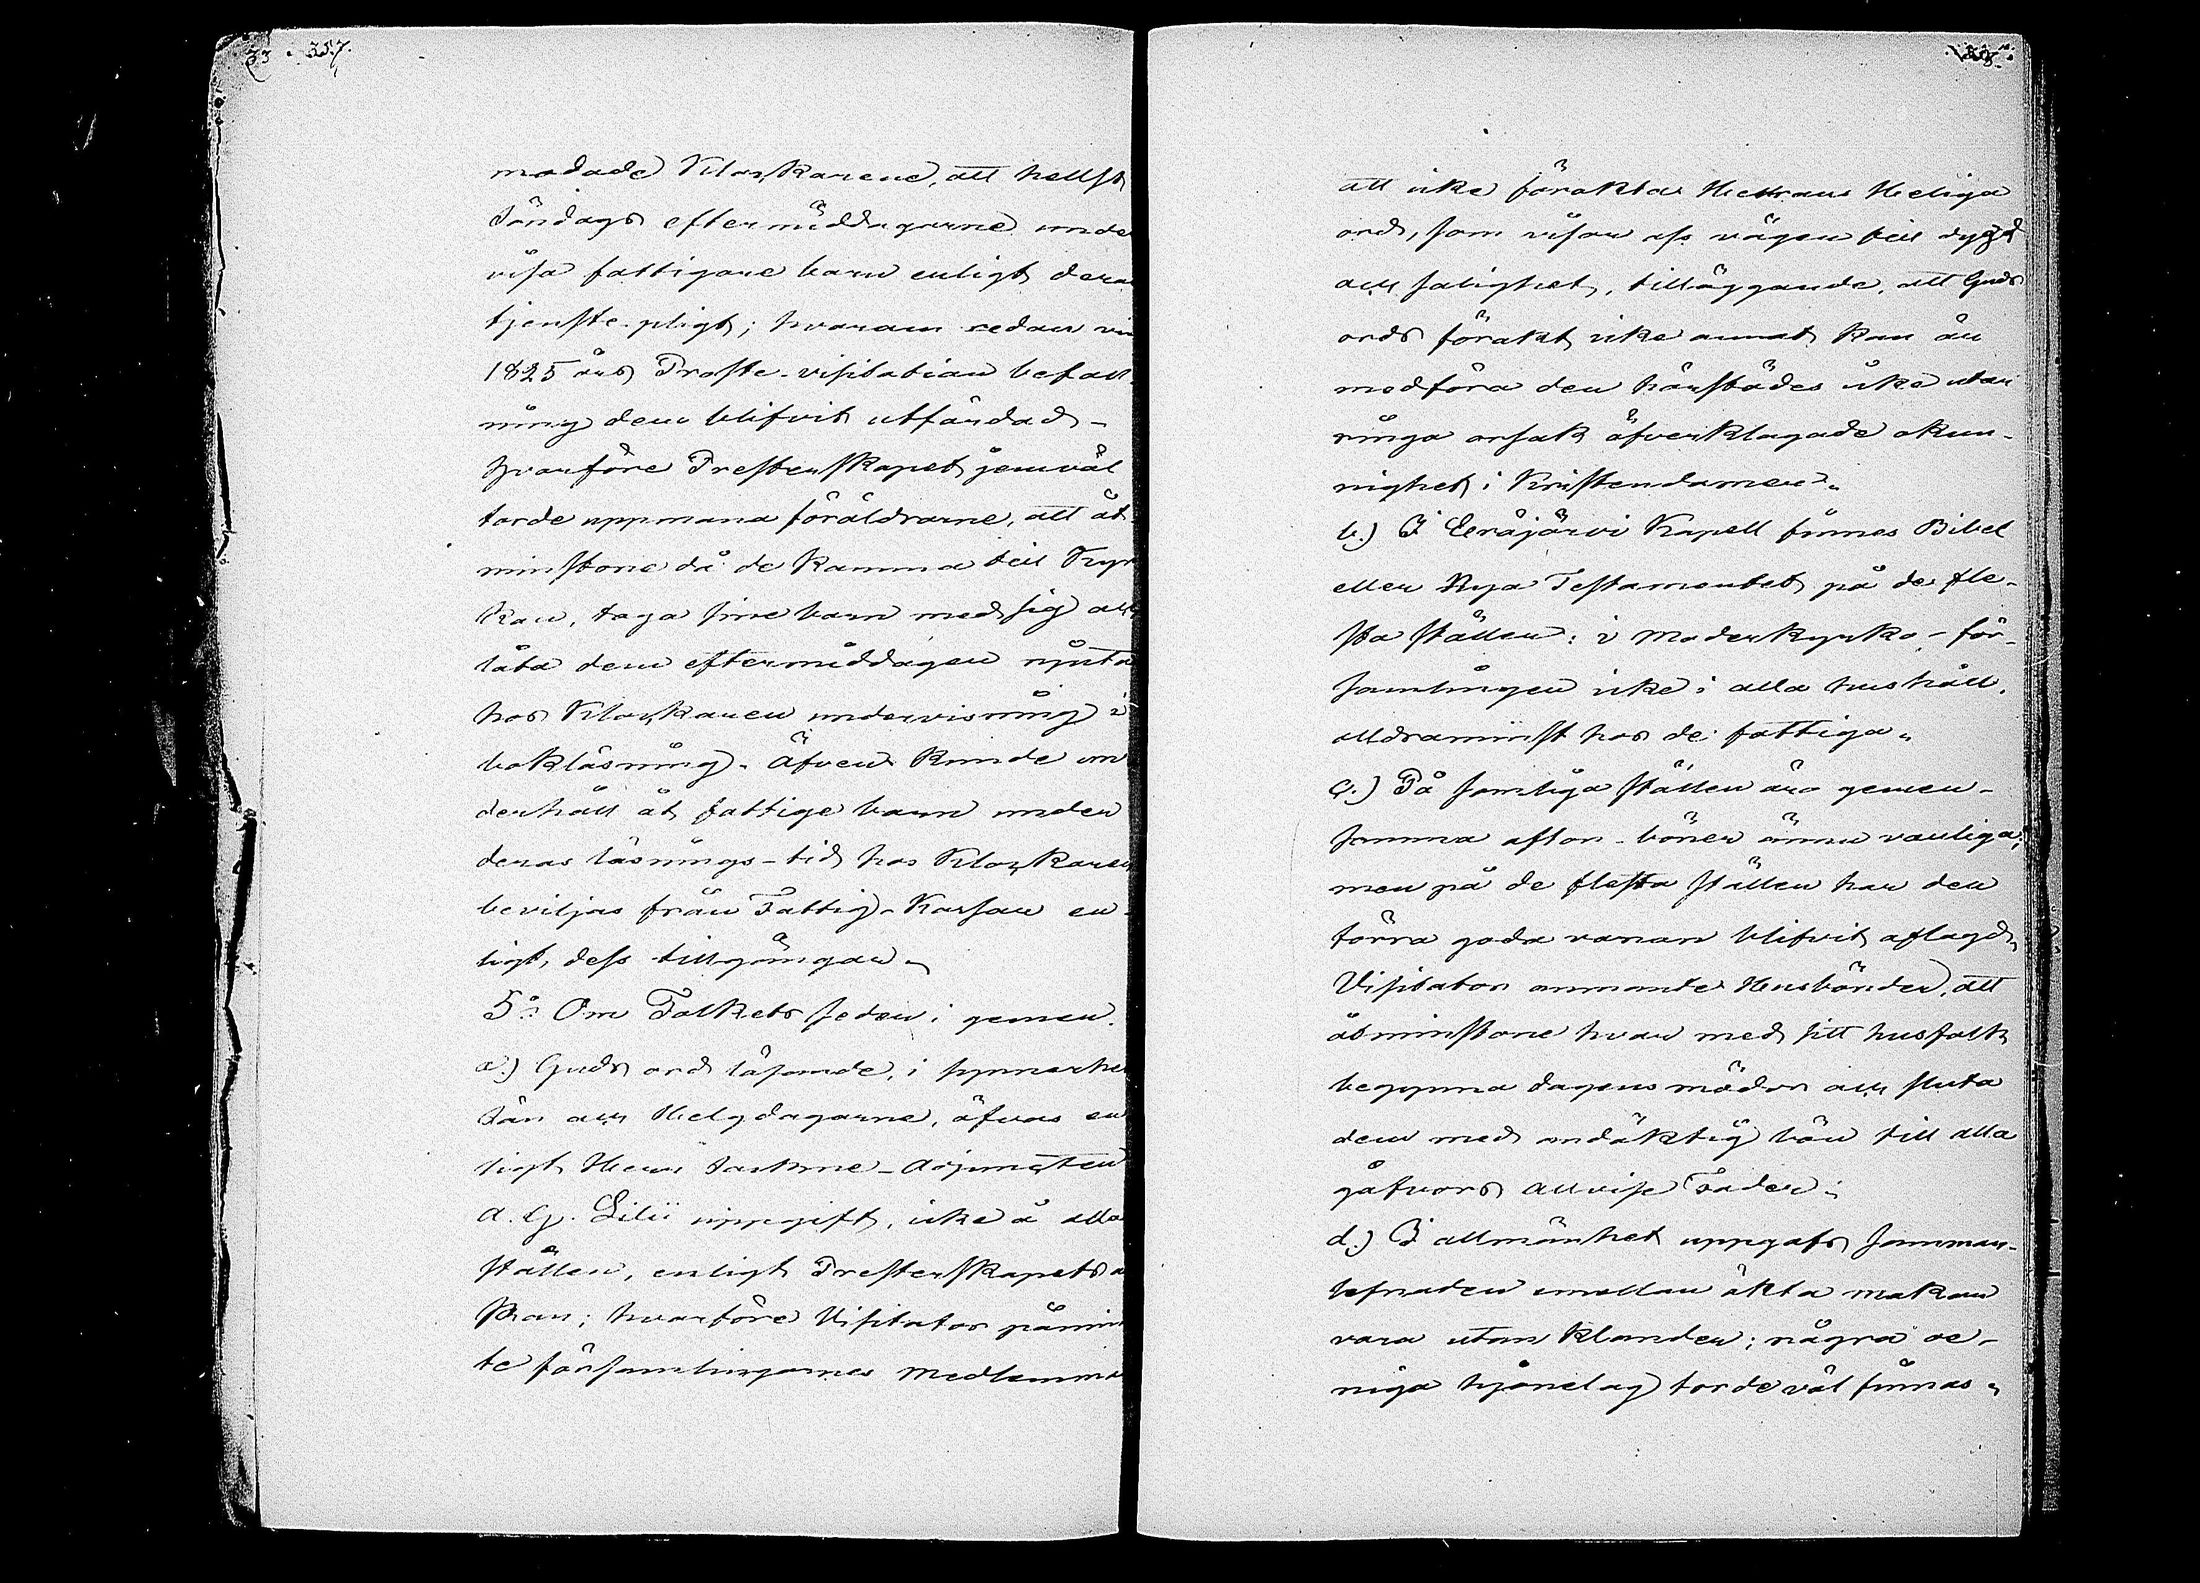 33. 357.
modade Klockarene, att hellst
Söndags eftermiddagarne unde
visa fattigare barn enligt dera
tjenste-pligt; hvarom redan vi
1825 års Proste-visitation befall-
ning dem blifvit utfärdad -
hvarföre Presterskapet jemväl
torde uppmana föräldrarne, att åt
minstone då de komma till Kyr
kan, taga sine barn med sig ock
låta dem eftermiddagen njuta
hos Klockaren undervisning i
bokläsning. Äfven kunde un
derhåll åt fattige barn under
deras läsnings-tid hos Klockaren
beviljas från Fattig-Kassan en-
ligt dess tillgångar.
5:o Om Folkets seder i gemen.
a.) Guds ord läsande, i synnerhe
Sön ock Helgdagarne, öfvas en
ligt Herr Sockne-Adjuncten
A. G. Lilii uppgift, icke å alla
ställen, enligt Presterskapets ö
skan; hvarföre Visitator påmin
te församlingarnes medlemma
att icke förakta Herrans Heliga
ord, som visar oss vägen till dygd
ock salighet, tilläggande, att Guds
ords förakt icke annat kan än
medföra den härstädes icke utan
ringa orsak öfverklagade okun-
nighet i Kristendomen.
b.) I Eräjärvi Kapell finnes Bibel
eller Nya Testamentet på de fle-
sta ställen: i Moderkyrko-för-
samlingen icke i alla hushåll,
alldraminst hos de fattiga.
c.) På somliga ställen äro gemen-
samma afton-böner ännu vanliga;
men på de flesta ställen har den
förra goda vanan blifvit aflagd.
Visitator anmante Husbönder, att
åtminstone hvar med sitt husfolk
begynna dagens mödor ock sluta
dem med andäktig bön till alla
gåfvors allvise Fader.
d.) I allmänhet uppgafs samman-
lefnaden emellan äkta makar
vara utan klander; några oe-
niga hjonelag torde väl finnas.